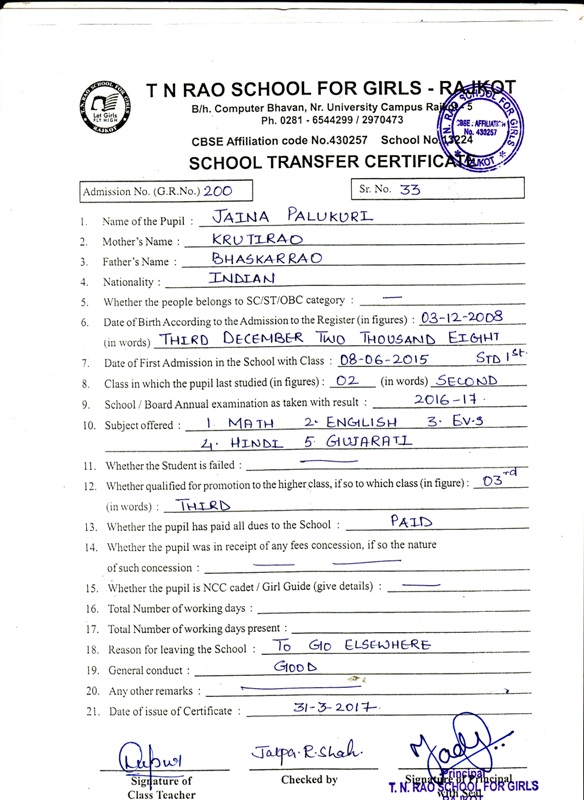 T N RAO SCHOOL FOR GIRLS - RAJKOT
B/h. Computer Bhavan, Nr. University Campus Rajkot - 5
Ph. 0281 - 6544299 / 2970473
CBSE Affiliation code No.430257 School No.13224
SCHOOL TRANSFER CERTIFICATE
T. N. RAO SCHOOL FOR GIRLS
Let Girls
FLY HIGH
RAJKOT
T. N. RAO SCHOOL FOR GIRLS
CBSE. AFFILIATION
No. 430257
RAJKOT
Admission No. (G.R.No.) 200 Sr. No. 33
1. Name of the Pupil : JAINA PALUKURI
2. Mother's Name : KRUTIRAO
3. Father's Name : BHASKARRAO
4. Nationality : INDIAN
5. Whether the people belongs to SC/ST/OBC category : —
6. Date of Birth According to the Admission to the Register (in figures) : 03-12-2008
(in words) THIRD DECEMBER TWO THOUSAND EIGHT
7. Date of First Admission in the School with Class : 08-06-2015 STD 1st.
8. Class in which the pupil last studied (in figures) : 02 (in words) SECOND
9. School / Board Annual examination as taken with result : 2016-17.
10. Subject offered : 1. MATH 2. ENGLISH 3. EV.S
4. HINDI 5. GUJARATI
11. Whether the Student is failed : —
12. Whether qualified for promotion to the higher class, if so to which class (in figure) : 03rd
(in words) : THIRD
13. Whether the pupil has paid all dues to the School : PAID
14. Whether the pupil was in receipt of any fees concession, if so the nature
of such concession : — —
15. Whether the pupil is NCC cadet / Girl Guide (give details) : —
16. Total Number of working days :
17. Total Number of working days present :
18. Reason for leaving the School : TO GO ELSEWHERE
19. General conduct : GOOD
20. Any other remarks : —
21. Date of issue of Certificate : 31-3-2017.
Jalpa.R.Shah.
Signature of
Class Teacher
Checked by
Signature of Principal
with Seal
Principal
T. N. RAO SCHOOL FOR GIRLS
RAJKOT